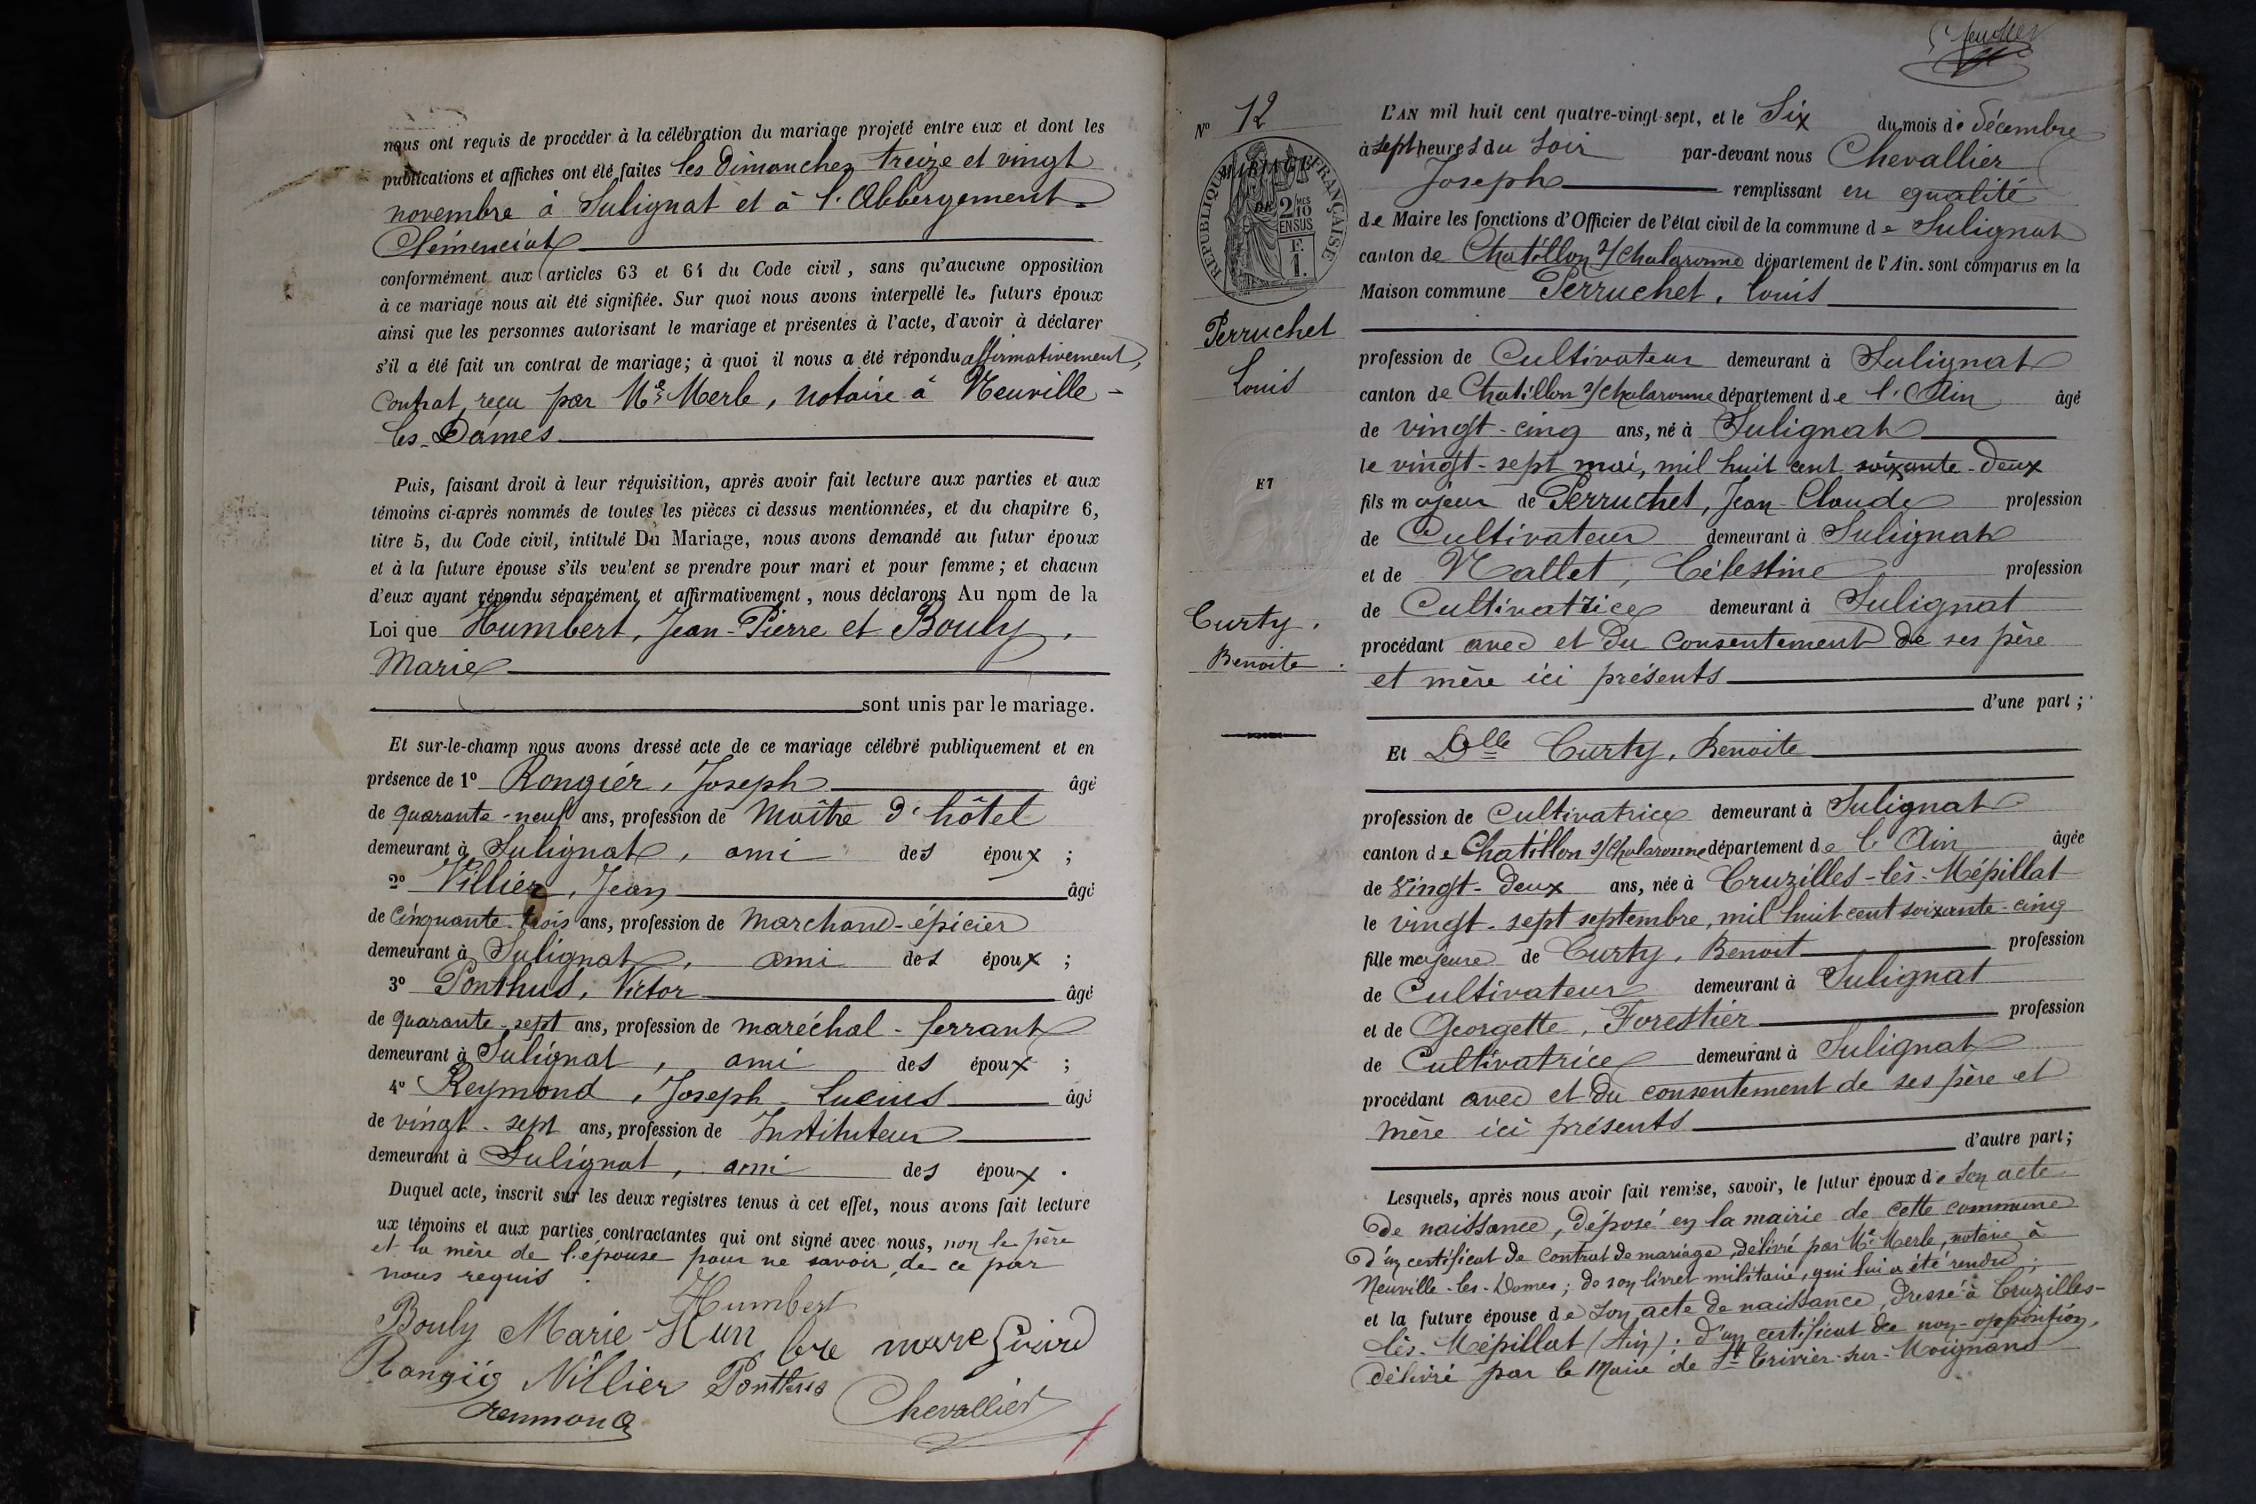 nous ont requis de procéder à la célébration du mariage projeté entre eux et dont les
publications et affiches ont été faites les Dimanches treize et vingt
novembre à Sulignat et à l'Abbergement-
Clémenciat
conformément aux articles 63 et 64 du Code civil, sans qu'aucune opposition
à ce mariage nous ait été signifiée. Sur quoi nous avons interpellé les futurs époux
ainsi que les personnes autorisant le mariage et présentes à l'acte, d'avoir à déclarer
s'il a été fait un contrat de mariage; à quoi il nous a été répondu affirmativement,
contrat reçu par Me Merle, notaire à Neuville-
les-Dames
Puis, faisant droit à leur réquisition, après avoir fait lecture aux parties et aux
témoins ci-après nommés de toutes les pièces ci dessus mentionnées, et du chapitre 6,
titre 5, du Code civil, intitulé Du Mariage, nous avons demandé au futur époux
et à la future épouse s'ils veulent se prendre pour mari et pour femme; et chacun
d'eux ayant répondu séparément et affirmativement, nous déclarons Au nom de la
Loi que Humbert, Jean-Pierre et Bouly,
Marie
sont unis par le mariage.
Et sur-le-champ nous avons dressé acte de ce mariage célébré publiquement et en
présence de 1° Rongiér, Joseph âgé
de quarante-neuf ans, profession de Maître d'hôtel
demeurant à Sulignat, ami des époux ;
2° Villier, Jean âgé
de cinquante-trois ans, profession de marchand-épicier
demeurant à Sulignat, ami des époux ;
3° Ponthus, Victor âgé
de quarante-sept ans, profession de maréchal-ferrant
demeurant à Sulignat, ami des époux ;
4° Reymond, Joseph-Lucius âgé
de vingt-sept ans, profession de Instituteur
demeurant à Sulignat, ami des époux.
Duquel acte, inscrit sur les deux registres tenus à cet effet, nous avons fait lecture
ux témoins et aux parties contractantes qui ont signé avec nous, non le père
et la mère de l'épouse pour ne savoir, de ce par
nous requis.
Humbert
Bouly Marie Hun
Villier Ponthus
Chevallier
N° 12
MARIAGE
RÉPUBLIQUE FRANÇAISE
DE 2 10 MES
EN SUS
F.
1.
Perruchet
Louis
ET
Curty,
Benoite.
L'AN mil huit cent quatre-vingt-sept, et le Six du mois de Décembre
à sept heures du soir par-devant nous Chevallier
Joseph remplissant en equalité
de Maire les fonctions d'Officier de l'état civil de la commune de Sulignat
canton de Chatillon s/ Chalaronne département de l'Ain. sont comparus en la
Maison commune Perruchet, Louis
profession de Cultivateur demeurant à Sulignat
canton de Chatillon s/ Chalaronne département de l'Ain âgé
de vingt-cinq ans, né à Sulignat
le vingt-sept mai, mil huit cent soixante-deux
fils majeur de Perruchet, Jean-Claude profession
de Cultivateur demeurant à Sulignat
et de Nallet, Célestine profession
de Cultivatrice demeurant à Sulignat
procédant avec et du consentement de ses père
et mère ici présents
d'une part;
Et Dlle Curty, Benoite
profession de Cultivatrice demeurant à Sulignat
canton de Chatillon s/ Chalaronne département de l'Ain âgée
de vingt-deux ans, née à Cruzilles-lès-Mépillat
le vingt-sept septembre, mil huit cent soixante-cinq
fille majeure de Curty, Benoit profession
de Cultivateur demeurant à Sulignat
et de Georgette, Forestier profession
de Cultivatrice demeurant à Sulignat
procédant avec et du consentement de ses père et
mère ici présents
d'autre part;
Lesquels, après nous avoir fait remise, savoir, le futur époux de son acte
de naissance, déposé en la mairie de cette commune
d'un certificat de contrat de mariage, délivré par Me Merle, notaire à
Neuville-les-Dames; de son livret militaire, qui lui a été rendu;
et la future épouse de son acte de naissance, dressé à Cruzilles-
lès-Mépillat (Ain); d'un certificat de non-opposition,
délivré par le Maire de St Trivier-sur-Moignans